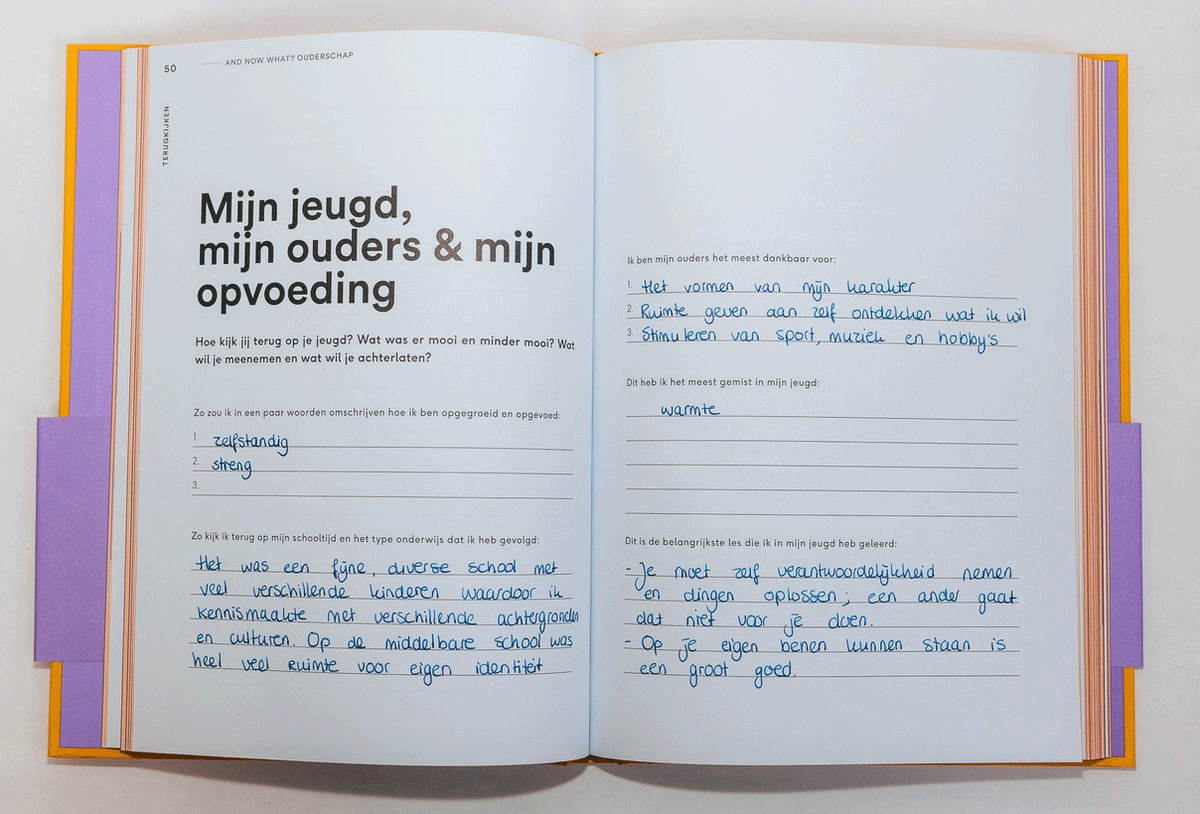 50
AND NOW WHAT? OUDERSCHAP
TERUGKIJKEN
Mijn jeugd,
mijn ouders & mijn
opvoeding
Hoe kijk jij terug op je jeugd? Wat was er mooi en minder mooi? Wat
wil je meenemen en wat wil je achterlaten?
Zo zou ik in een paar woorden omschrijven hoe ik ben opgegroeid en opgevoed:
1. zelfstandig
2. streng
3.
Zo kijk ik terug op mijn schooltijd en het type onderwijs dat ik heb gevolgd:
Het was een fijne, diverse school met
veel verschillende kinderen waardoor ik
kennismaakte met verschillende achtergronden
en culturen. Op de middelbare school was
heel veel ruimte voor eigen identiteit
Ik ben mijn ouders het meest dankbaar voor:
1. Het vormen van mijn karakter
2. Ruimte geven aan zelf ontdekken wat ik wil
3. Stimuleren van sport, muziek en hobby's
Dit heb ik het meest gemist in mijn jeugd:
warmte
Dit is de belangrijkste les die ik in mijn jeugd heb geleerd:
- Je moet zelf verantwoordelijkheid nemen
en dingen oplossen; een ander gaat
dat niet voor je doen.
- Op je eigen benen kunnen staan is
een groot goed.